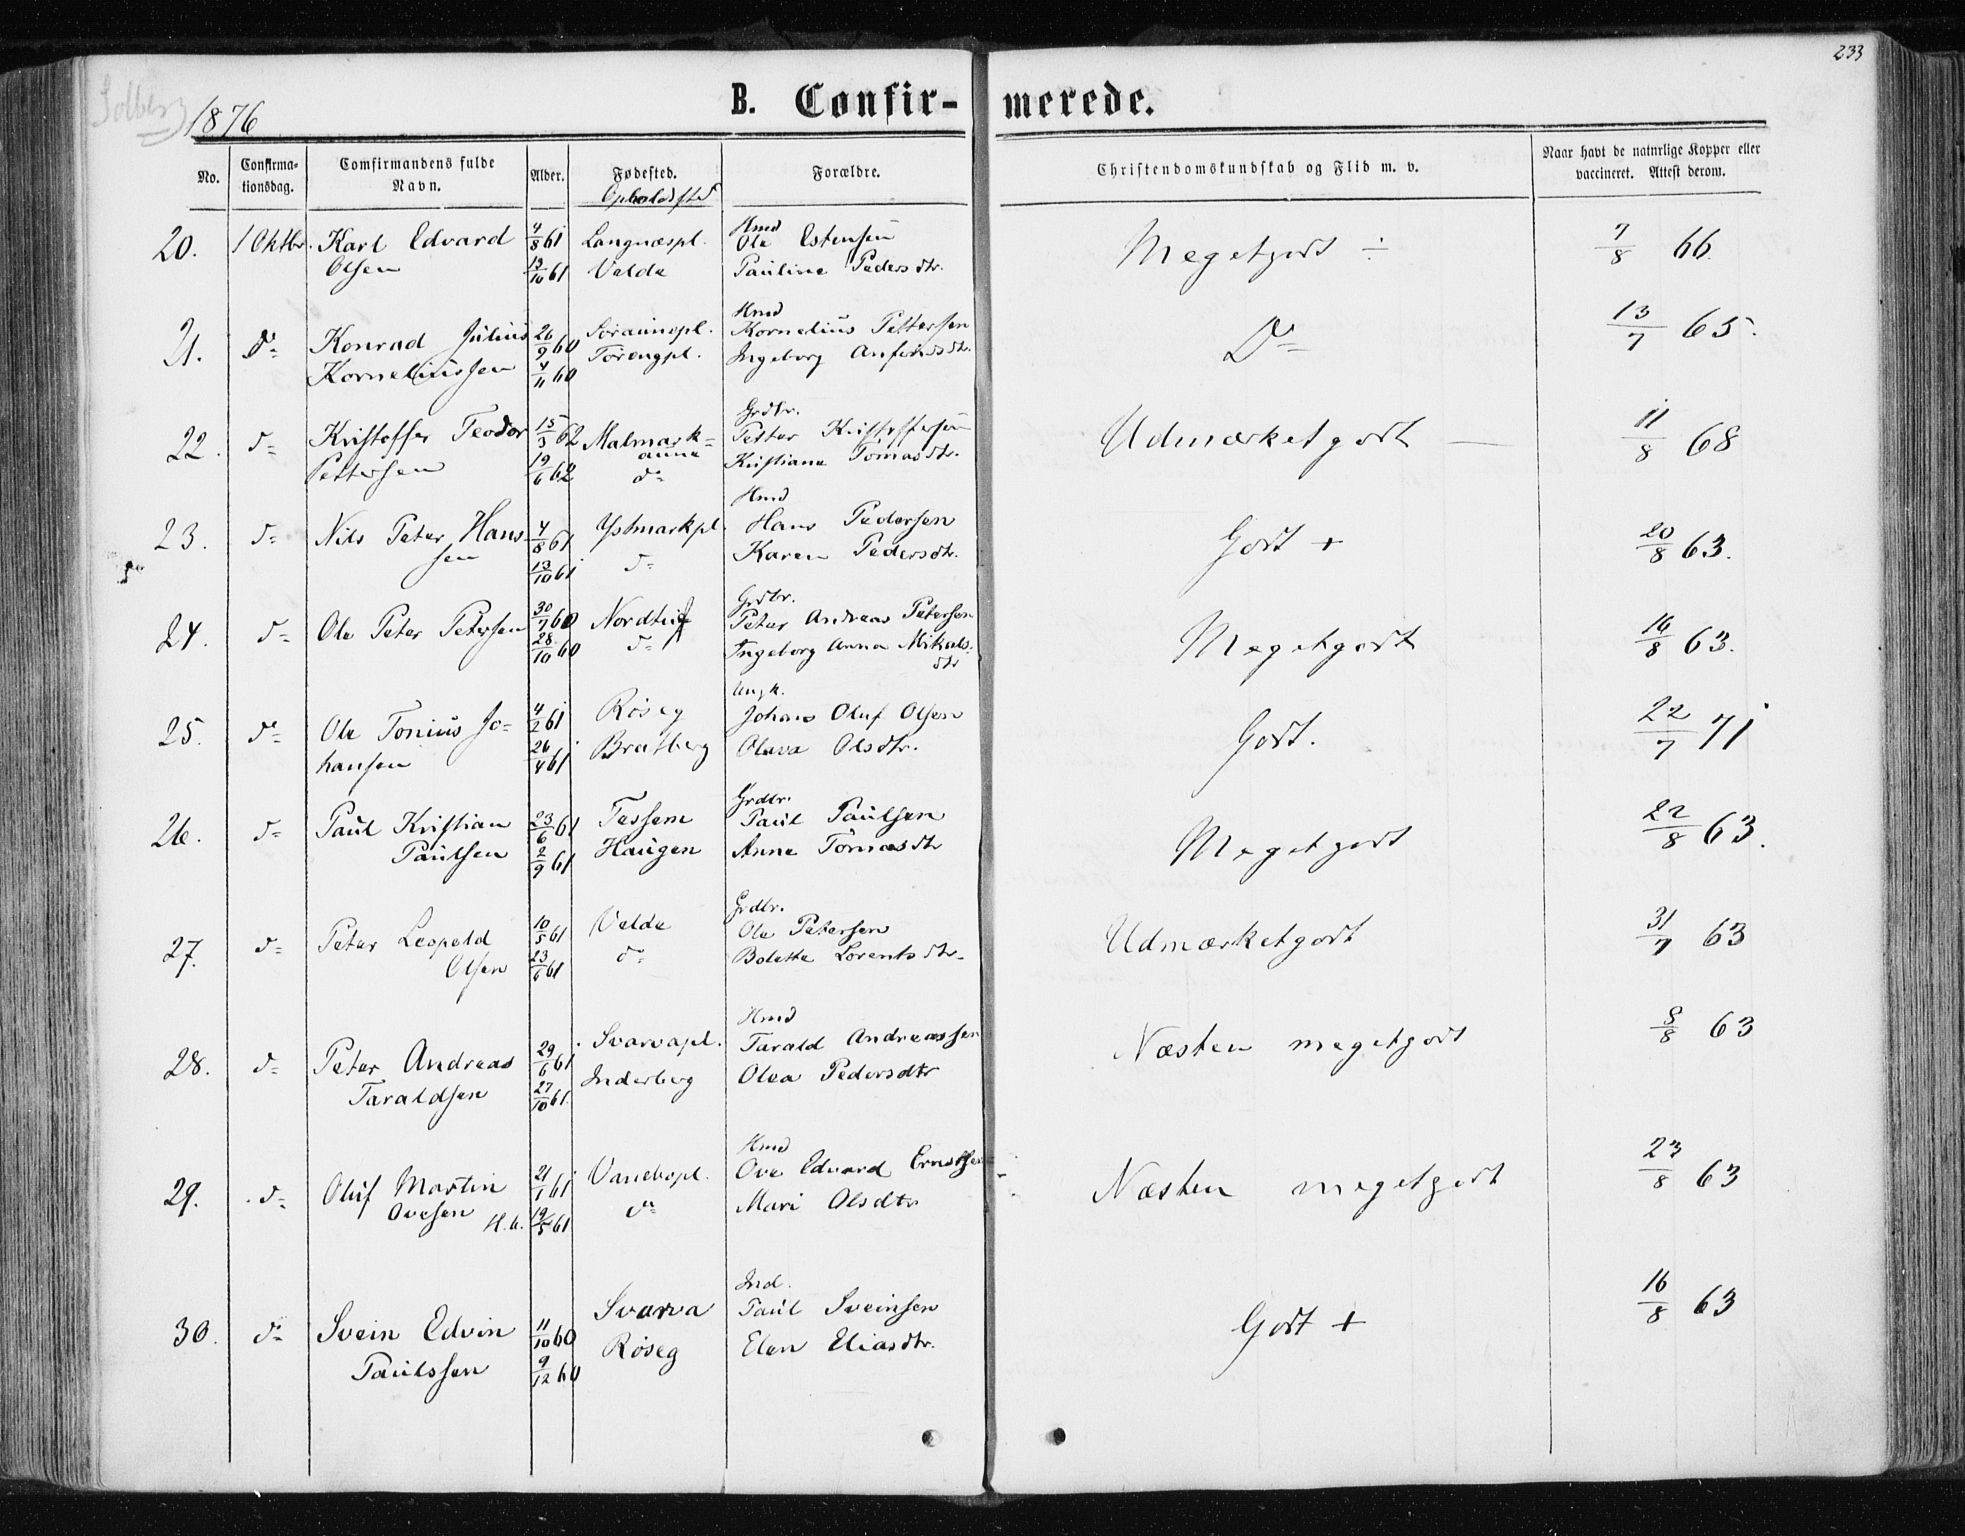 233
Solberg
1876
B. Confir- merede.
No.
Confirma-
tionsdag.
Comfirmandens fulde
Navn.
Alder.
Fødested.
Opholdssted
Forældre.
Christendomskundskab og Flid m. v.
Naar havt de naturlige Kopper eller
vaccineret. Attest derom.
20. 1 Oktbr. Karl Edvard 4/8 61 Langnæspl. Hmd Ole Estensen Megetgodt ÷ 7/8 66.
Olsen 13/10 61 Velde Pauline Pedersdtr.
21. do Konrad Julius 26/9 60 Søraunepl. Hmd Kornelius Pettersen Do 13/7 65.
Korneliussen 4/11 60 Törengpl. Ingeborg Anfindsdtr.
22. do Kristoffer Teodor 15/3 62 Malmark= Grdbr. Petter Kristoffersen Udmærketgodt — 11/8 68
aune
Pettersen 19/6 62 do Kristiana Tomasdtr.
23. do Nils Peter Hans- 4/8 61 Ystmarkpl. Hmd Hans Pedersen Godt + 20/8 63.
sen 13/10 61 do Karen Pedersdtr.
24. do Ole Peter Petersen 30/7 60 Grdbr. Peter Andreas Petersen Megetgodt 16/8 63.
28/10 60 do Ingeborg Anna Mikals-
dtr
25. do Ole Tonius Jo- 4/2 61 Røseg Ungk. Johans Oluf Olsen Godt. 22/7 71
hansen 26/4 61 Bratberg Olava Olsdtr.
26. do Paul Kristian 23/6 61 Tessem Grdbr. Paul Paulsen Megetgodt 22/8 63.
Paulsen 2/9 61 Haugen Anne Tomasdtr
27. do Peter Leopold 10/5 61 Velde Grdbr. Ole Petersen Udmærketgodt 31/7 63
Olsen 23/6 61 do Bolette Lorentsdtr.
28. do Peter Andreas 29/6 61 Svarvapl. Hmd Tarald Andreassen Næsten megetgodt 8/8 63
Taraldsen 27/10 61. Inderberg Olea Pedersdtr
29. do Oluf Martin 21/1 61 Hmd Ove Edvard Ernstsen Næsten megetgodt 23/8 63
Ovesen 19/5 61 do Mari Olsdtr
30. do Svein Edvin 11/10 60 Svarva Ind. Paul Sveinsen Godt + 16/8 63
Paulssen 9/12 60 Røseg Elen Eliasdtr.